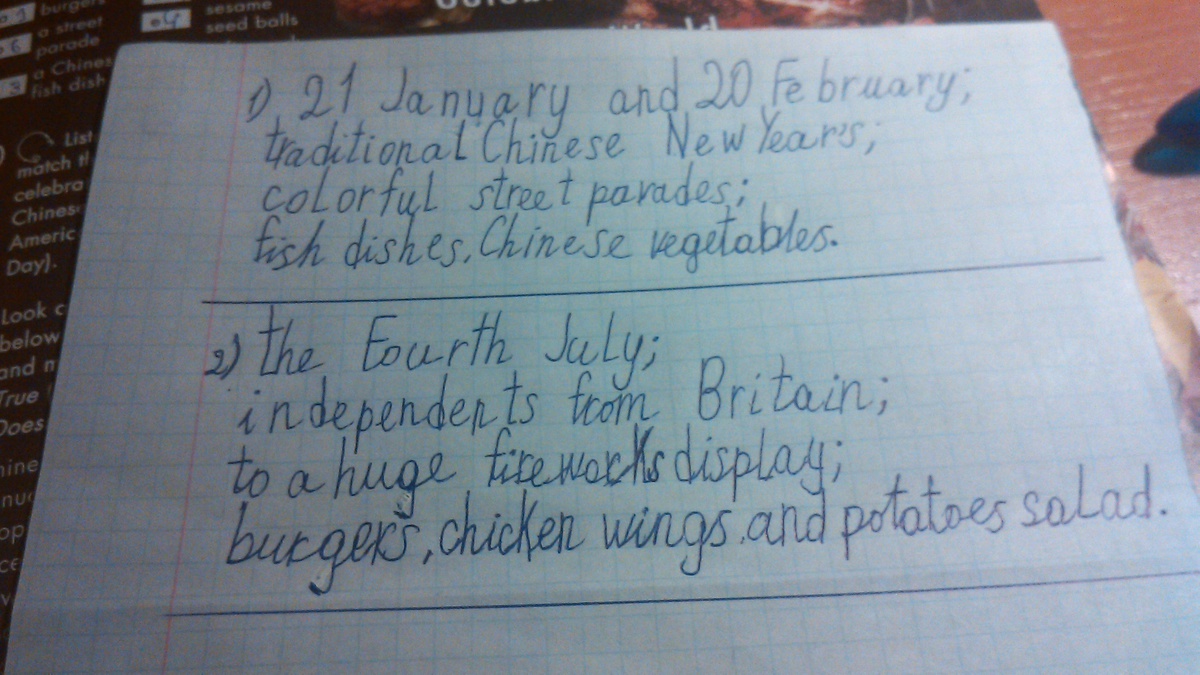 burgers
a street
parade
a Chines
fish dish
sesame
seed balls
List
match th
celebra
Chines
Americ
Day).
Look c
below
and m
True
Does
1) 21 January and 20 February;
traditional Chinese New Year's;
colorful street parades;
fish dishes, Chinese vegetables.
2) the Fourth July;
independents from Britain;
to a huge fireworks display;
burgers, chicken wings, and potatoes salad.